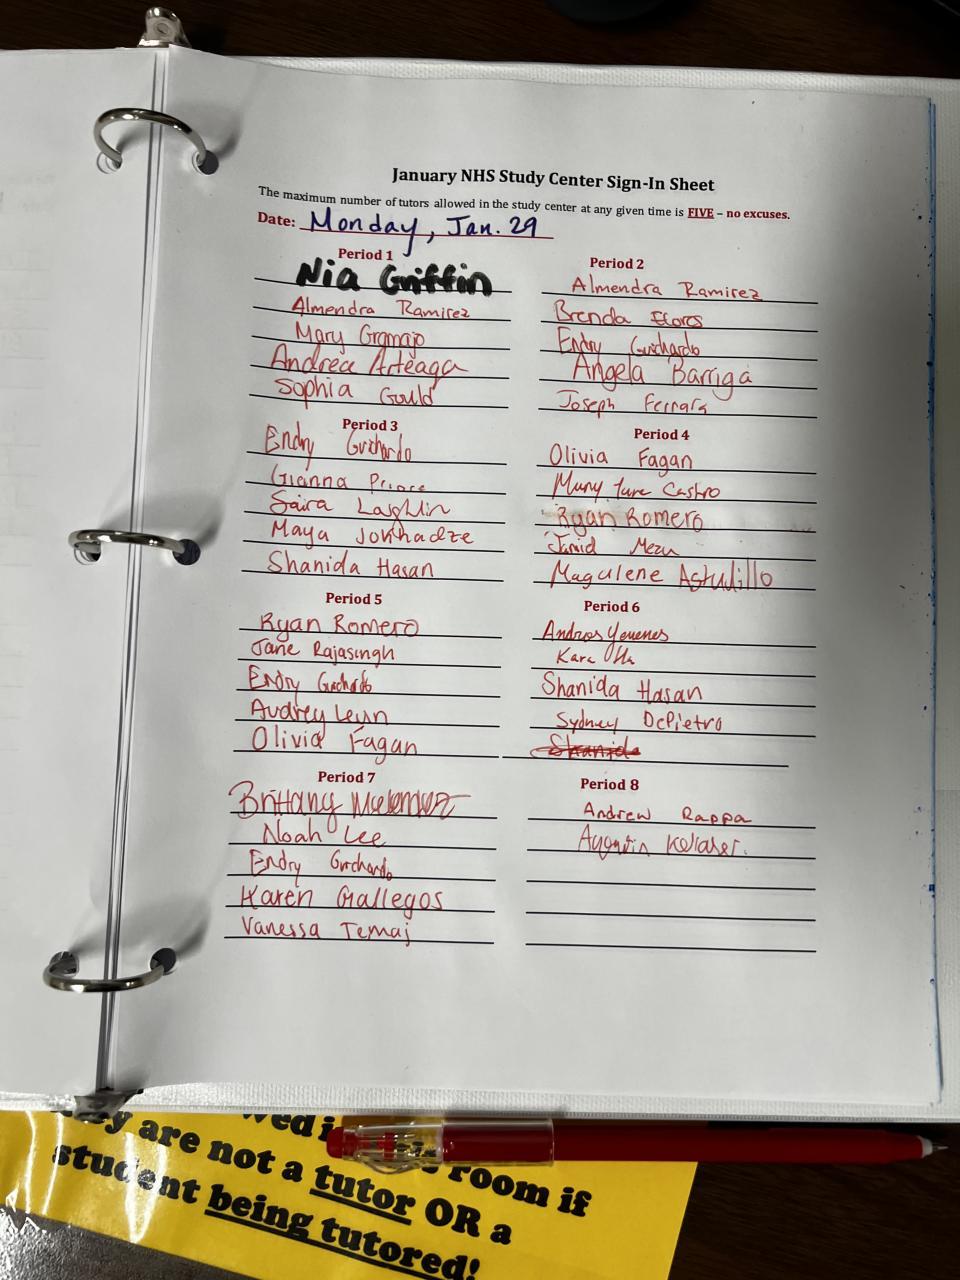 January NHS Study Center Sign-In Sheet
The maximum number of tutors allowed in the study center at any given time is FIVE – no excuses.
Date: Monday, Jan. 29
Period 1
Nia Griffin
Almendra Ramirez
Mary Gramajo
Andrea Arteaga
Sophia Gould
Period 2
Almendra Ramirez
Brenda Flores
Endry Guichardo
Angela Barriga
Joseph Ferrara
Period 3
Endry Guichardo
Gianna Prince
Saira Laghlin
Maya Jokhadze
Shanida Hasan
Period 4
Olivia Fagan
Castro
Ryan Romero
Magalene Astudillo
Period 5
Ryan Romero
Jane Rajasingh
Endry Guichardo
Audrey
Olivia Fagan
Period 6
Kara
Shanida Hasan
Sydney DePietro
Shanida
Period 7
Brittany
Noah Lee
Endry Guichardo
Karen Gallegos
Vanessa Temaj
Period 8
Andrew Rappa
room if
they are not a tutor OR a
student being tutored!